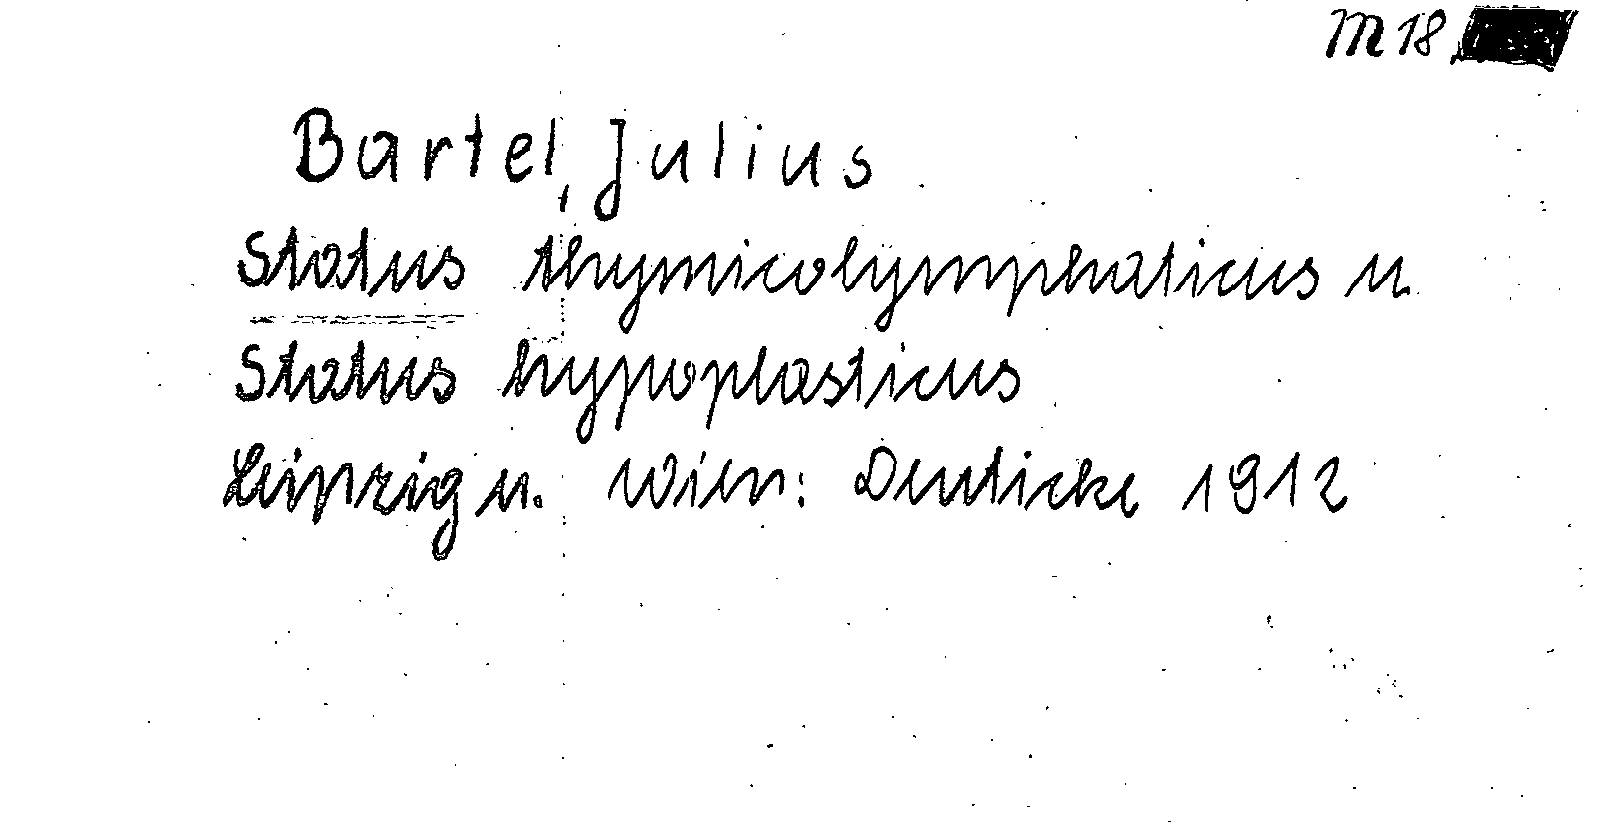 M 18
Bartel, Julius
Status thymicolymphaticus u.
Status hypoplasticus
Leipzig u. Wien: Deuticke 1912